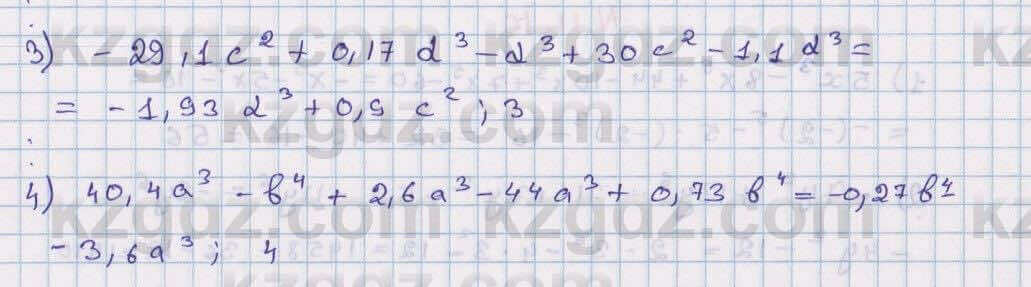 3) - 29,1 c² + 0,17 d³ - d³ + 30 c² - 1,1 d³ =
= - 1,93 d³ + 0,9 c² ; 3
4) 40,4 a³ - в⁴ + 2,6 a³ - 44 a³ + 0,73 в⁴ = -0,27 в⁴
- 3,6 a³ ; 4
kzgdz.com